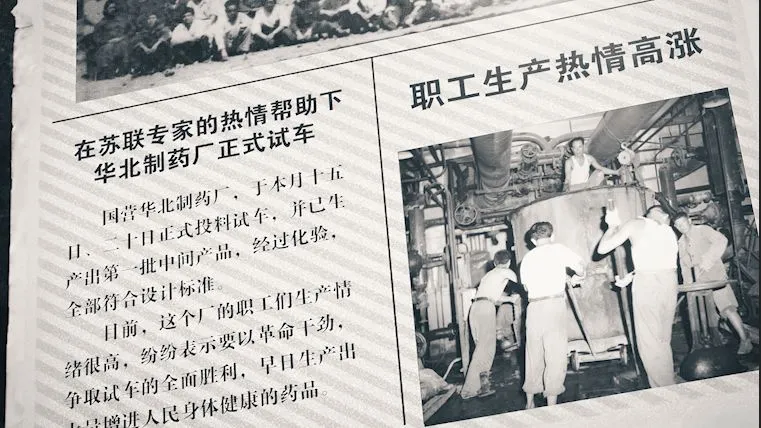 在苏联专家的热情帮助下
华北制药厂正式试车
国营华北制药厂，于本月十五
日、二十日正式投料试车，并已生
产出第一批中间产品，经过化验，
全部符合设计标准。
目前，这个厂的职工们生产情
绪很高，纷纷表示要以革命干劲，
争取试车的全面胜利，早日生产出
大量增进人民身体健康的药品。
职工生产热情高涨